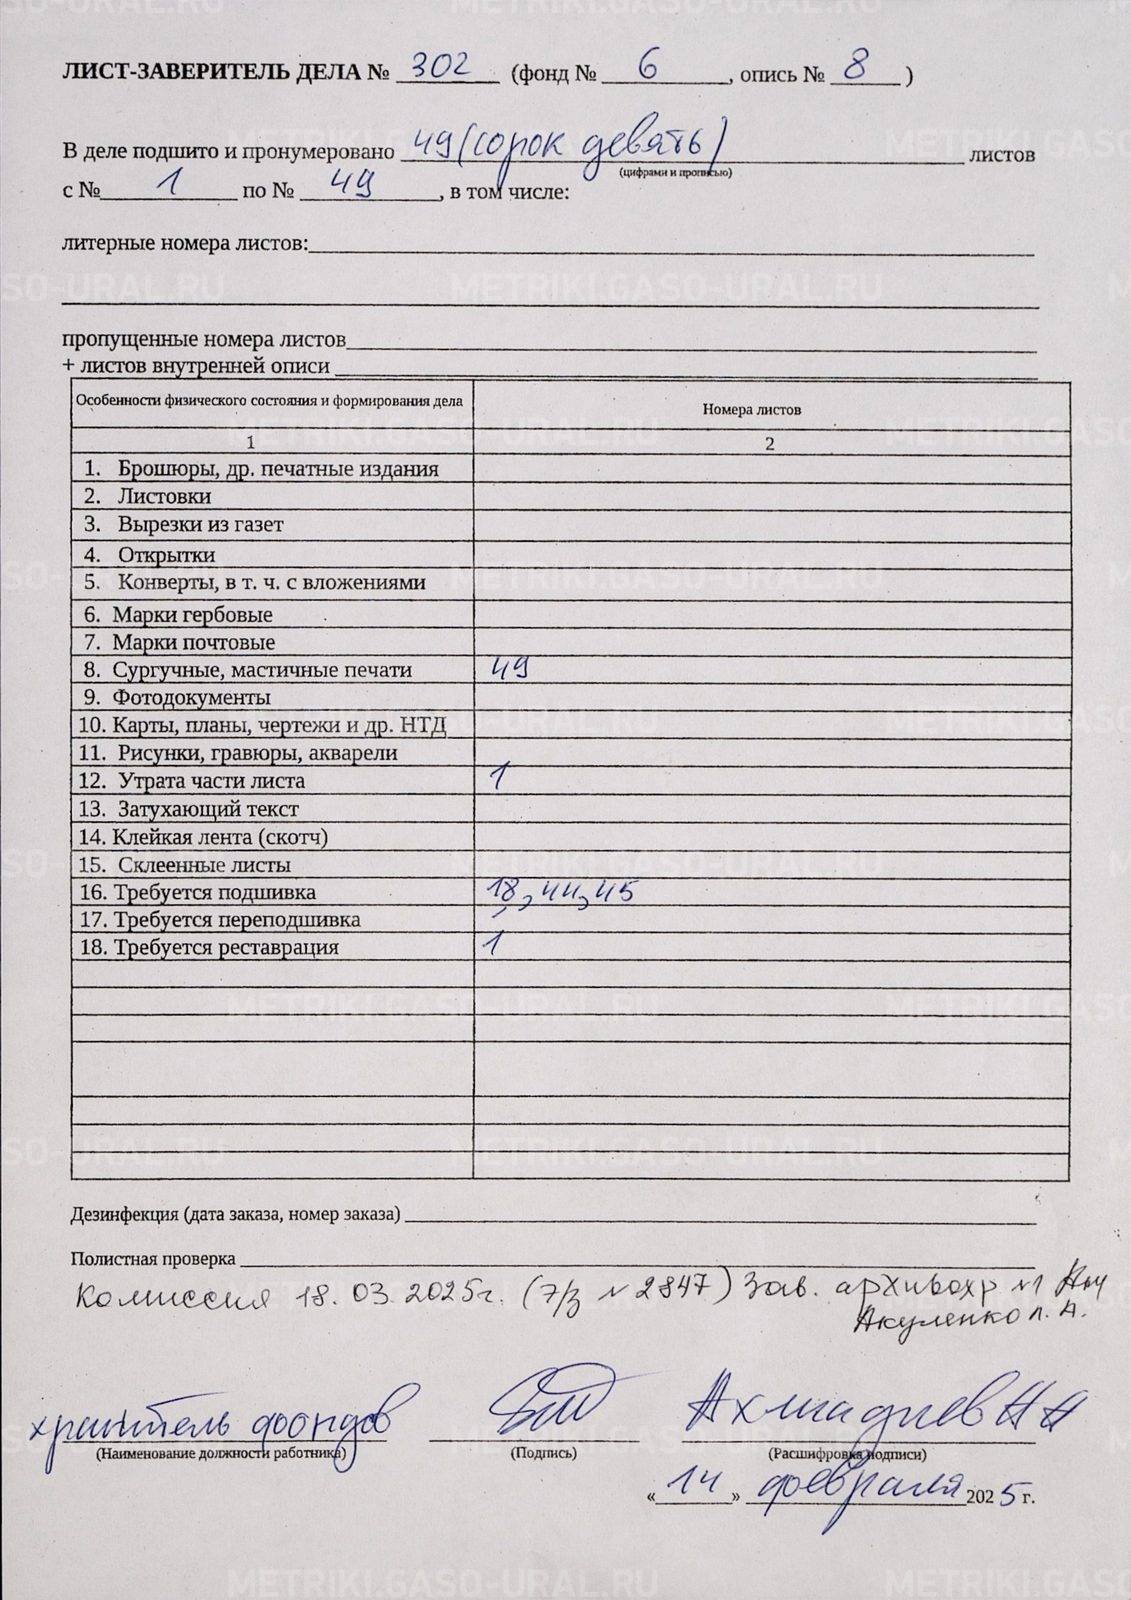 ЛИСТ-ЗАВЕРИТЕЛЬ ДЕЛА № 302 (фонд № 6, опись № 8)
В деле подшито и пронумеровано 49 (сорок девять) листов
(цифрами и прописью)
с № 1 по № 49, в том числе:
литерные номера листов:
пропущенные номера листов
+ листов внутренней описи
Особенности физического состояния и формирования дела Номера листов
1 2
1. Брошюры, др. печатные издания
2. Листовки
3. Вырезки из газет
4. Открытки
5. Конверты, в т. ч. с вложениями
6. Марки гербовые
7. Марки почтовые
8. Сургучные, мастичные печати 49
9. Фотодокументы
10. Карты, планы, чертежи и др. НТД
11. Рисунки, гравюры, акварели
12. Утрата части листа 1
13. Затухающий текст
14. Клейкая лента (скотч)
15. Склеенные листы
16. Требуется подшивка 18, 44, 45
17. Требуется переподшивка
18. Требуется реставрация 1
Дезинфекция (дата заказа, номер заказа)
Полистная проверка
Комиссия 18.03.2025г. (т/з №2847) Зав. архивохр №1
Акуленко Л. А.
хранитель фондов Ахмадиев А А
(Наименование должности работника) (Подпись) (Расшифровка подписи)
«14» февраля 2025 г.
METRIKI.GASO-URAL.RU